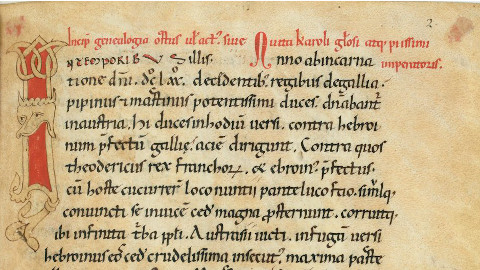 2
Incip genealogia ortus ul act. siue Vita karoli glosi atq; piissimi
TEMPORIBUS illis. Anno abincarna imperatoris.
tione dni. dc lxx. decedentib; regibus degallia.
pipinus & martinus potentissimi duces. dnabant
inaustria. hi duces inhodium uersi. contra hebroi
num pfectum gallie. acie dirigunt. Contra quos
theodericus rex franchor. & ebroin pfectus.
cu hoste cucurrer loco nuncupante lucofao. simlq.
conuncti se inuice cede magna psternunt. corruitq.
ibi infinita tba ppli. Austrasii uicti. infugam uersi
hebroinus eos cede crudelissima insecut. maxima parte